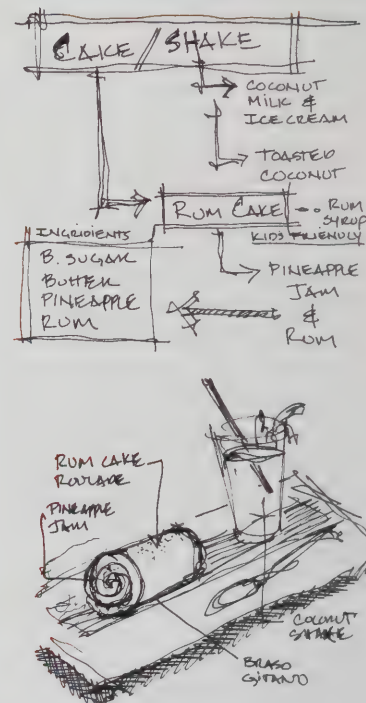 CAKE / SHAKE
COCONUT
MILK &
ICE CREAM
TOASTED
COCONUT
RUM CAKE
RUM
SYRUP
KIDS FRIENDLY
INGRIDIENTS
B. SUGAR
BUTTER
PINEAPPLE
RUM
PINEAPPLE
JAM
&
RUM
RUM CAKE
ROULADE
PINEAPPLE
JAM
COCONUT
SHAKE
BRASO
GITANO